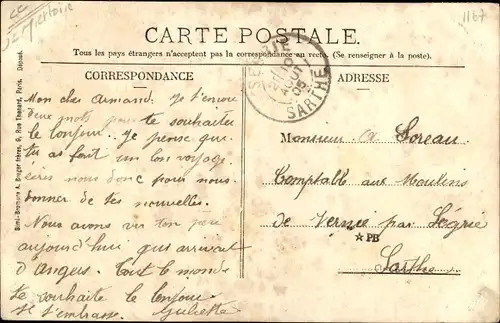 1167
CARTE POSTALE.
Tous les pays étrangers n'acceptent pas la correspondance au recto. (Se renseigner à la poste).
CORRESPONDANCE
ADRESSE
SARTHE
Mon cher Armand: Je t'envoie
deux mots pour te souhaiter
le bonjour.. je pense que
tu as fait un bon voyage
écris nous donc pour nous
donner de tes nouvelles.
Nous avons vu ton père
aujourd'hui qui arrivait
d'Angers. Tout le monde
te souhaite le bonjour
et t'embrasse. Juliette
Monsieur A Loreau
Comptable aux Moulins
de Vernie par Ségrie
★PB
Sarthe
Simi-Bromure A. Breger frères, 9, Rue Thénard, Paris. Déposé.